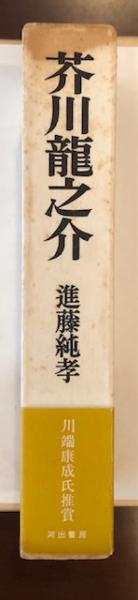 芥川龍之介
進藤純孝
川端康成氏推賞
河出書房